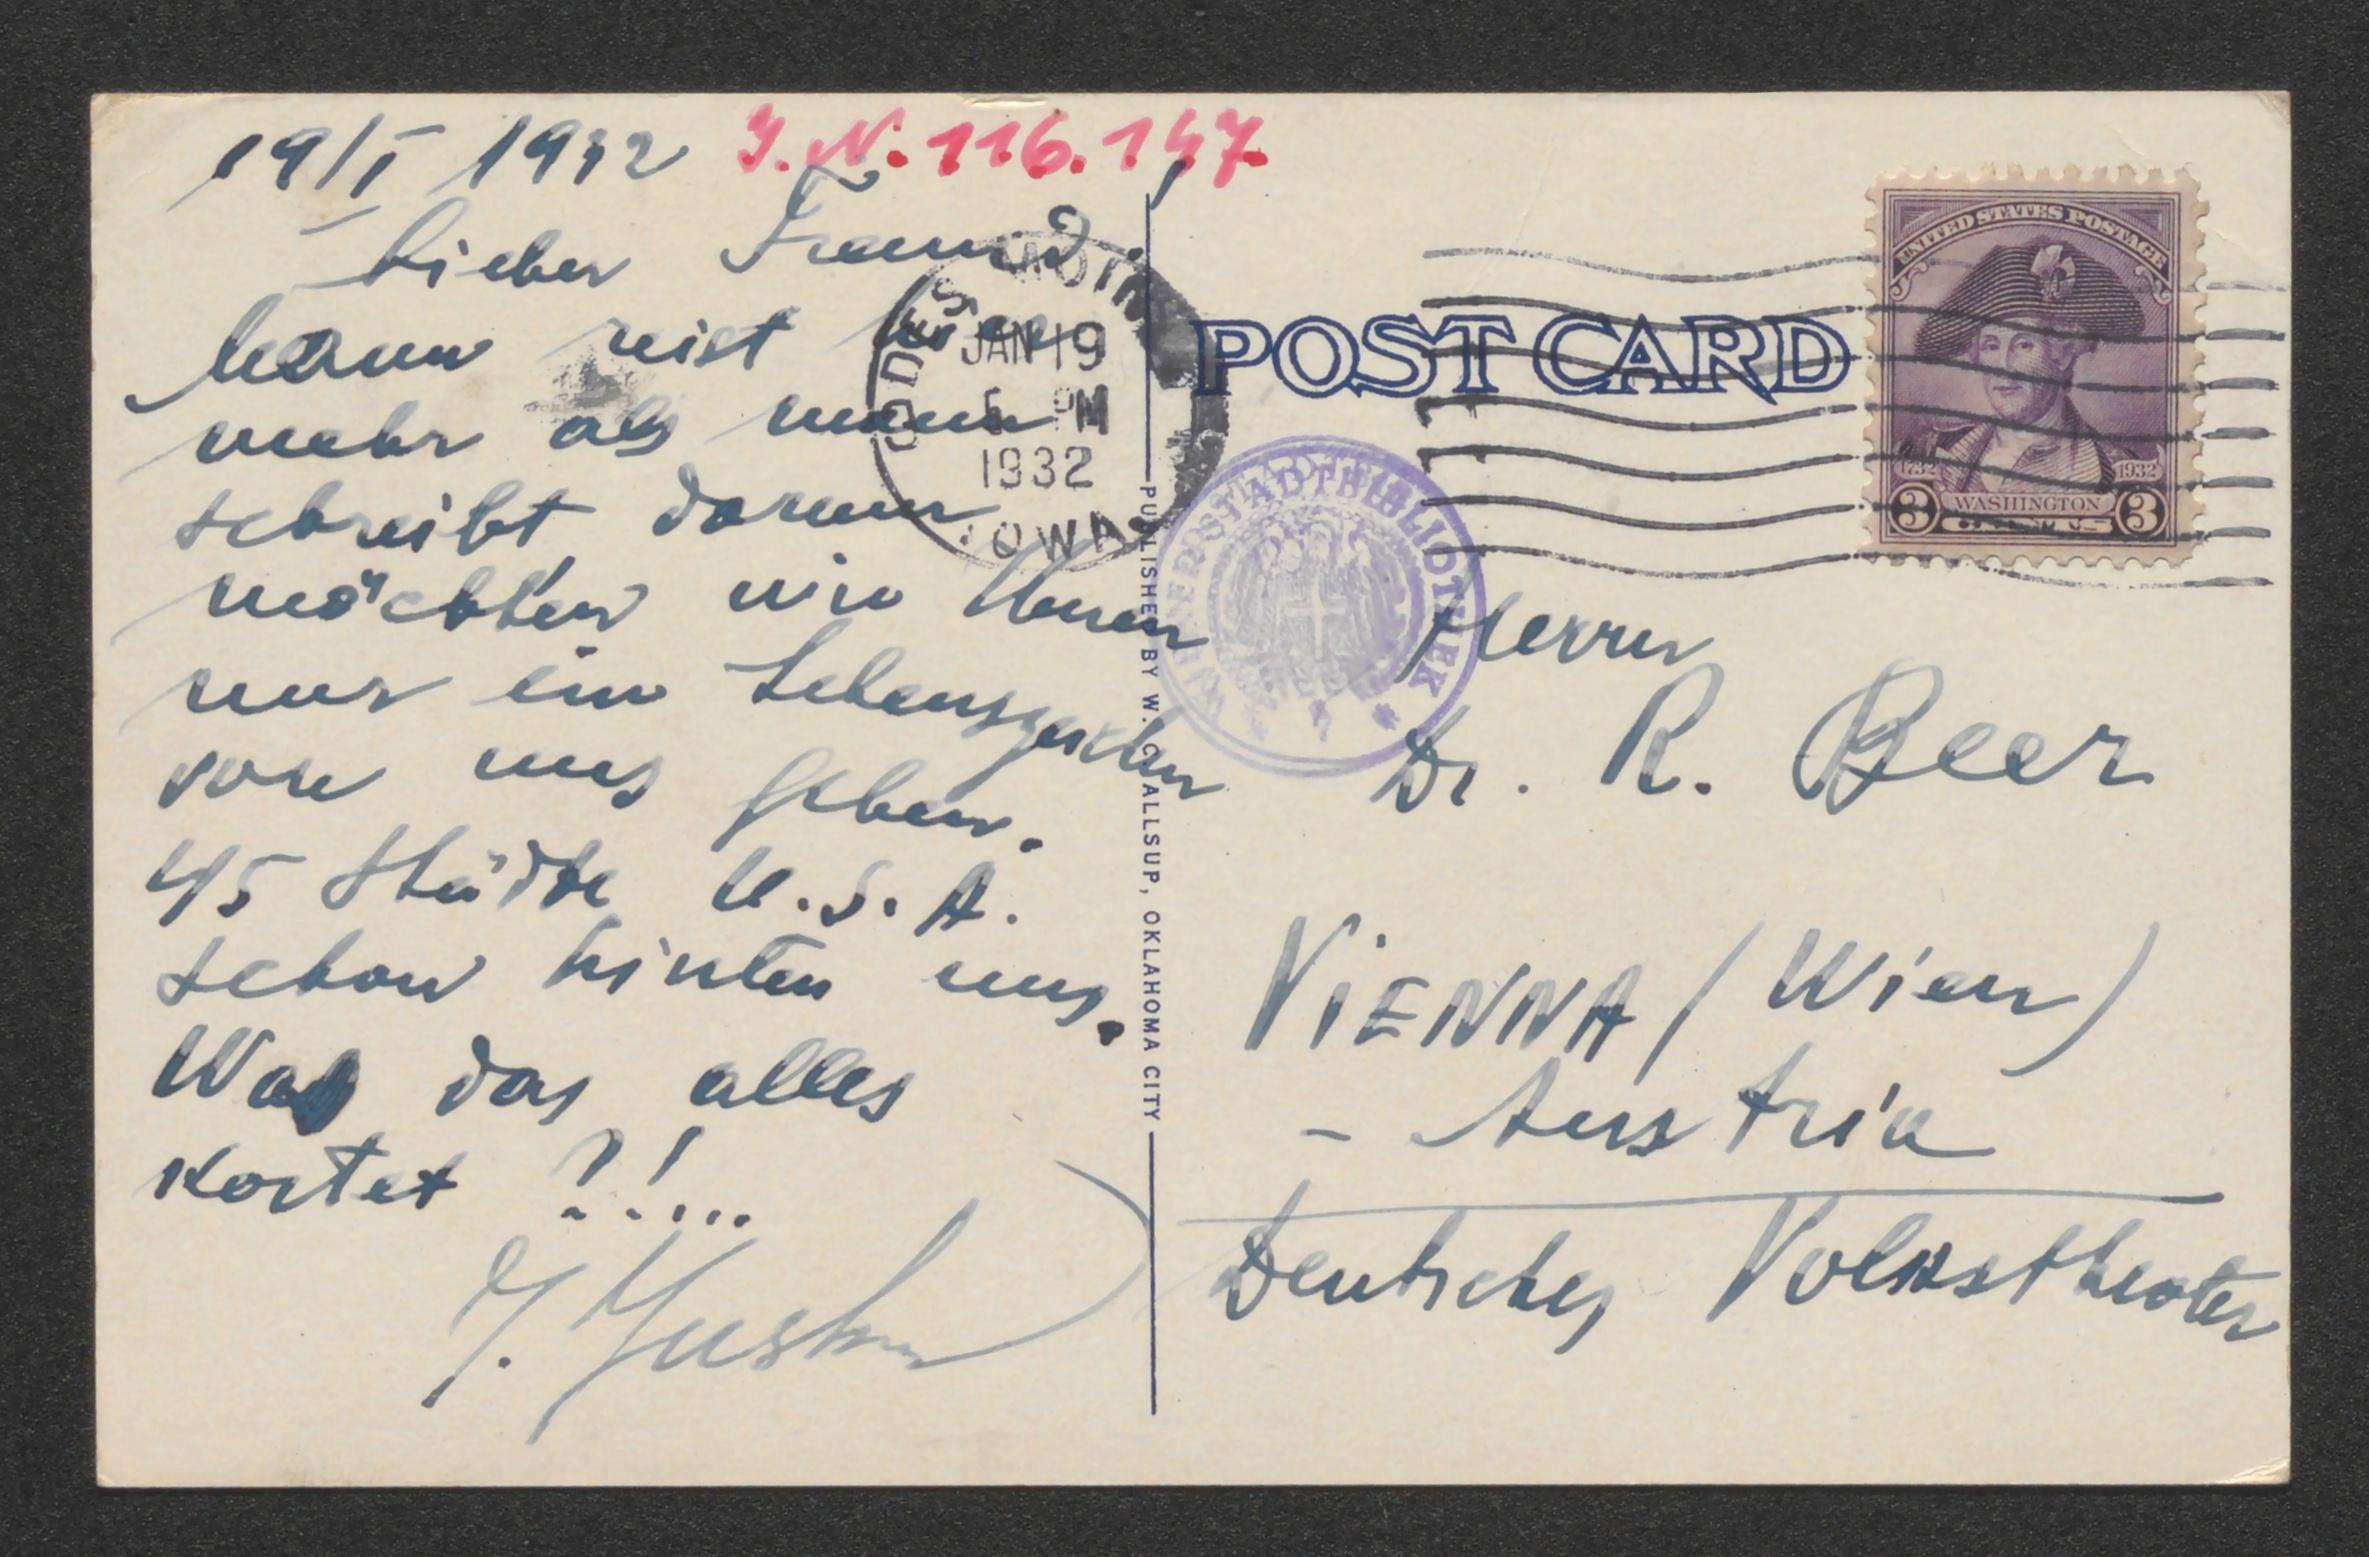 19/I 1932
J.N. 116.147
Lieber Freund,
man reist hier
mehr als man
schreibt, darum
möchten wir Ihnen
nur ein Lebenszeichen
von uns geben.
45 Städte U.S.A.
schon hinter uns.
Was das alles
kostet ?!...
DES MOINES
JAN 19
PM
1932
IOWA
PUBLISHED BY W. C. ALLSUP, OKLAHOMA CITY
POST CARD
UNITED STATES POSTAGE
1732 1932
3 WASHINGTON 3
WIENER STADTBIBLIOTHEK
Herrn
Dr. R. Beer
ViENNA / Wien)
- Austria
Deutsches Volkstheater